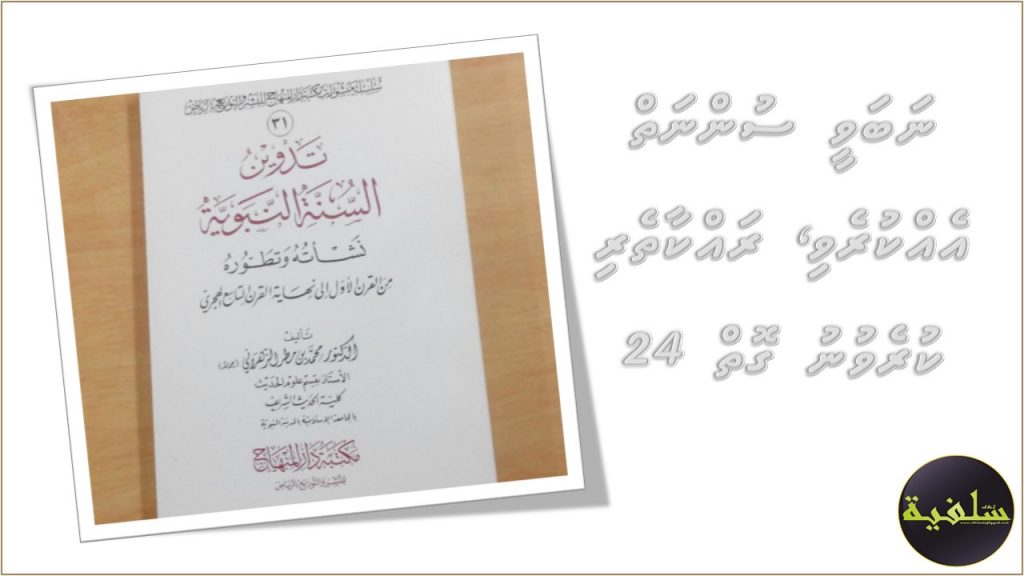 سلسلة منشورات مكتبة دار المنهاج للنشر والتوزيع بالرياض
٣١
تَدْوِينُ
السُّنَّةِ النَّبَوِيَّةِ
نَشْأَتُهُ وَتَطَوُّرُهُ
مِنَ القَرْنِ الأَوَّلِ إِلَى نِهَايَةِ القَرْنِ التَّاسِعِ الهِجْرِيِّ
تَأليف
الدكتور محمد بن مطر الزهراني
الأستاذ بقسم علوم الحديث
كلية الحديث الشريف
بالجامعة الإسلامية بالمدينة النبوية
مكتبة دار المنهاج
للنشر والتوزيع بالرياض
ނަބަވީ ސުންނަތް
އެއްކުރެވި، ރައްކާތެރި
ކުރެވުނު ގޮތް 24
سلفية